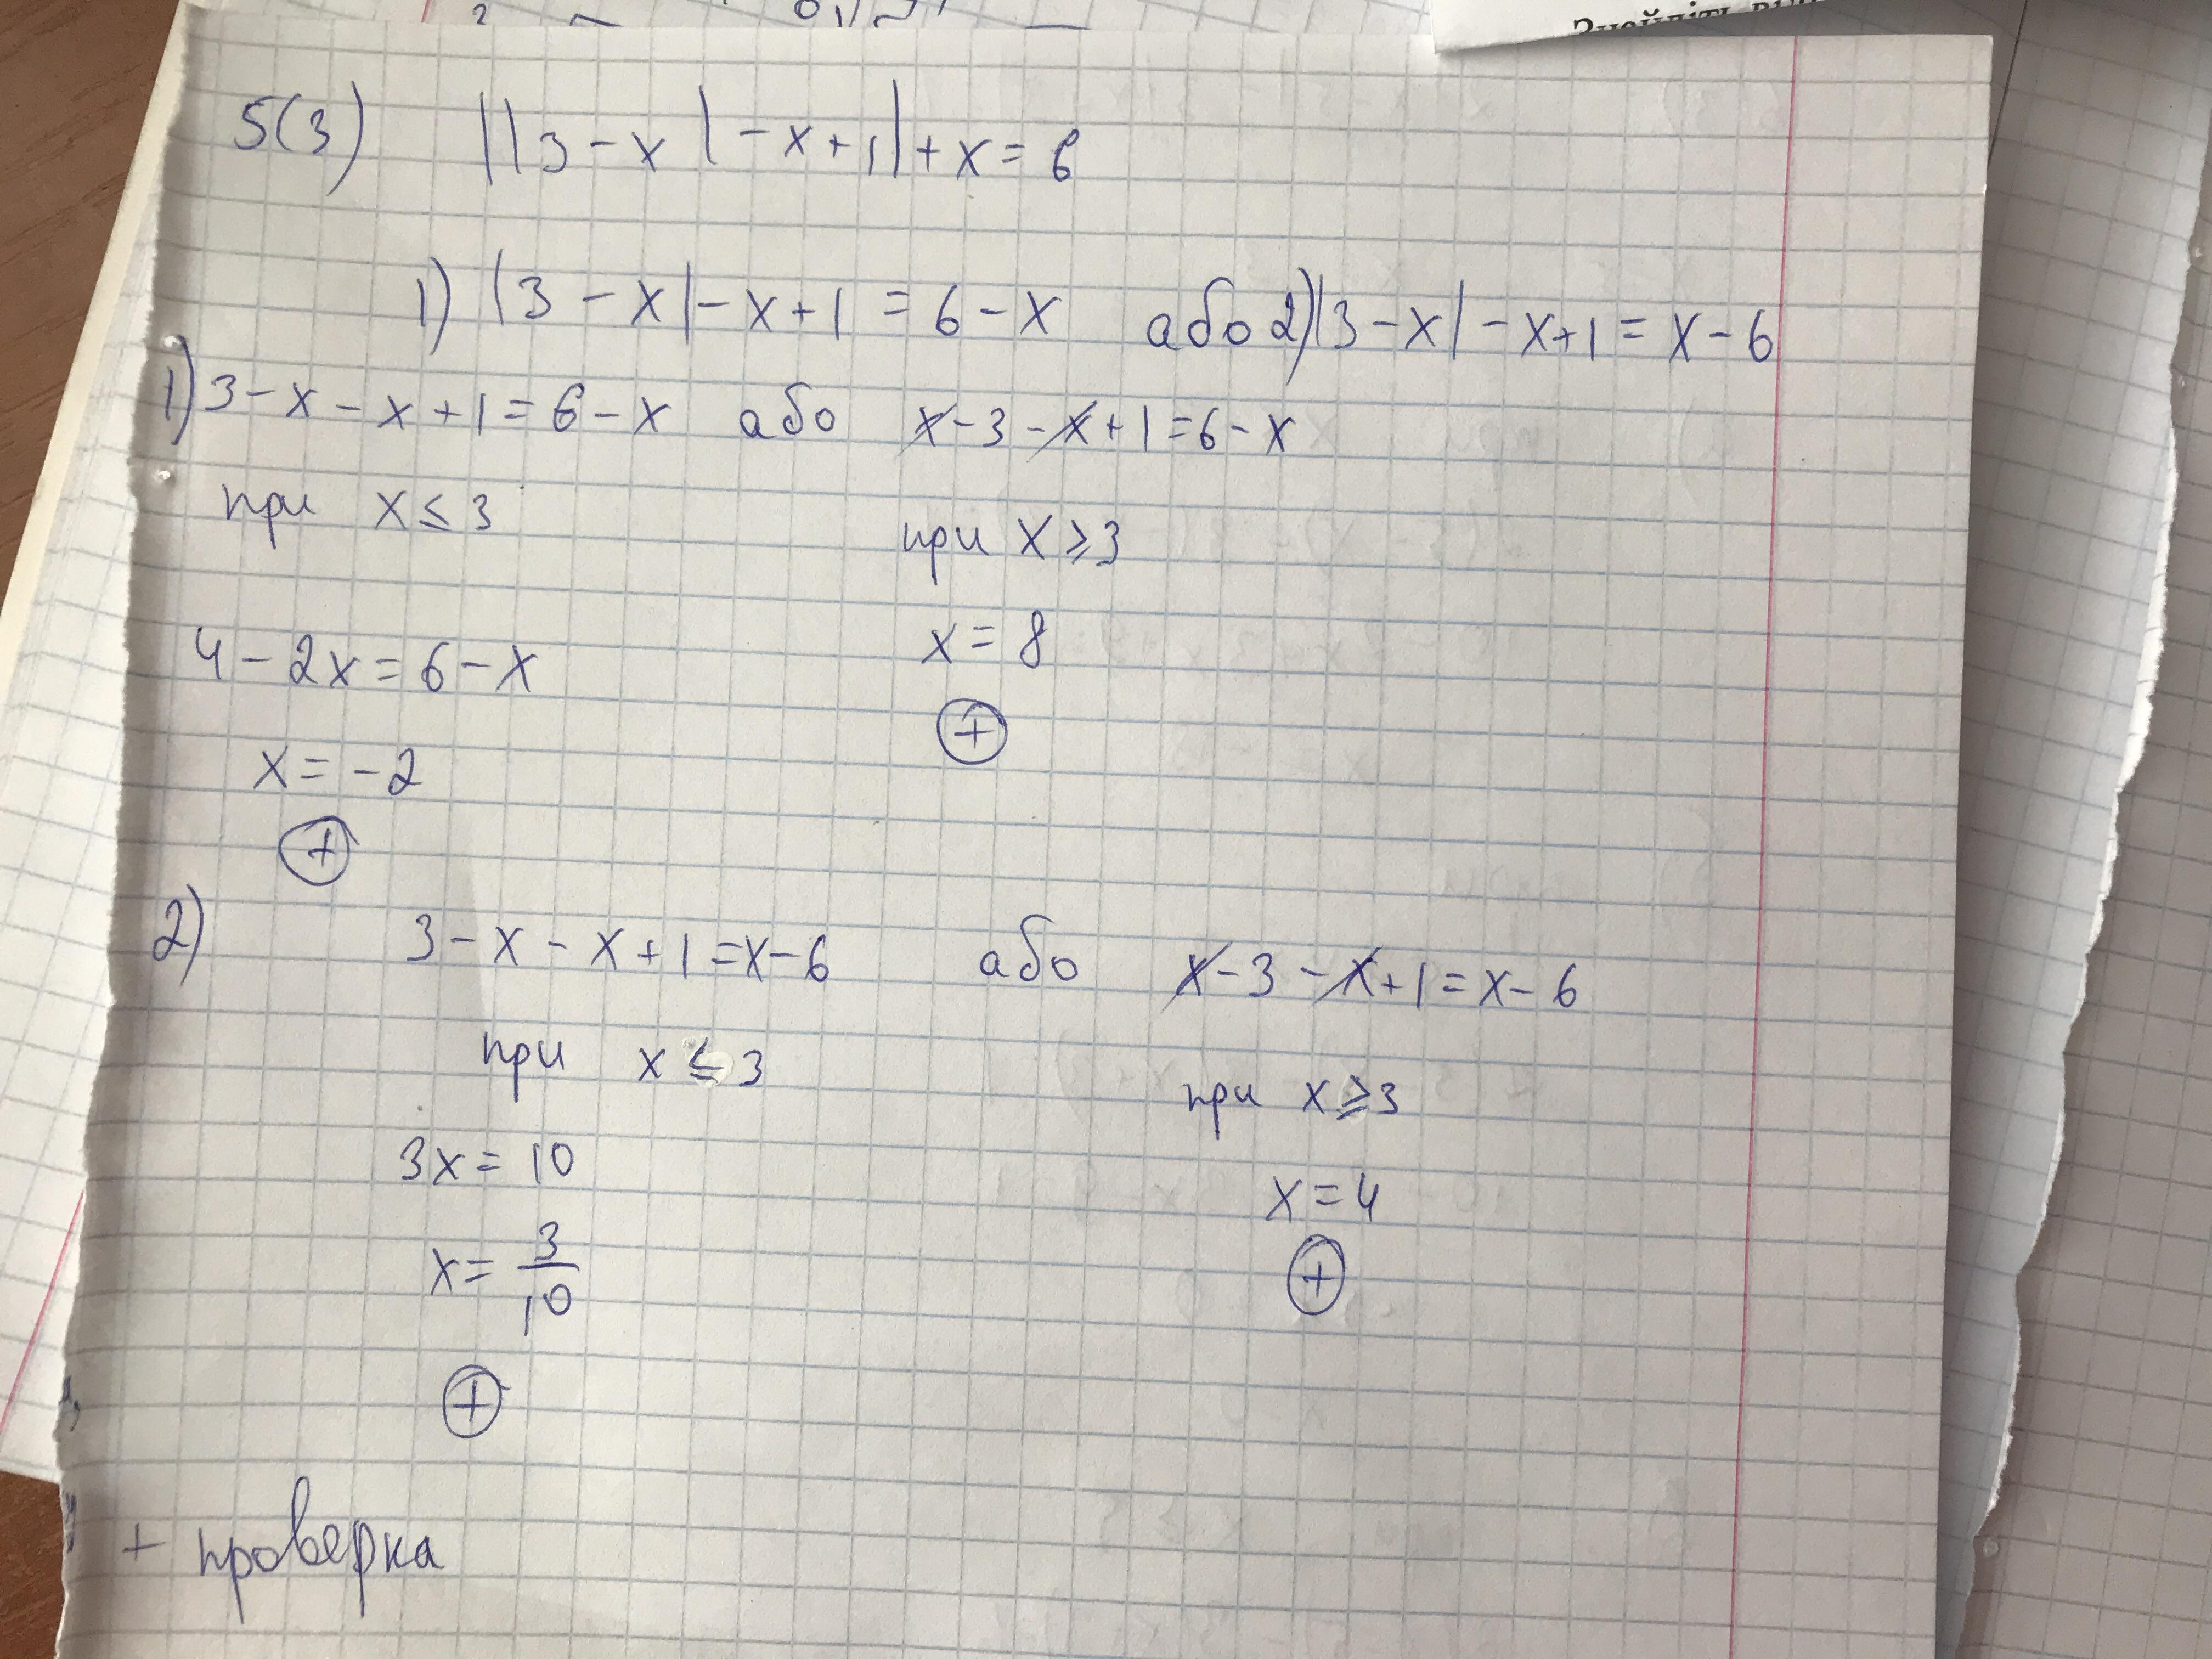 Знайдіть
5(3) ||3-x|-x+1|+x=6
1) |3-x|-x+1=6-x або 2) |3-x|-x+1=x-6
1) 3-x-x+1=6-x або x-3-x+1=6-x
при x≤3 при x≥3
4-2x=6-x x=8
x=-2 +
+
2) 3-x-x+1=x-6 або x-3-x+1=x-6
при x≤3 при x≥3
3x=10 x=4
x=3/10 +
+
+ проверка